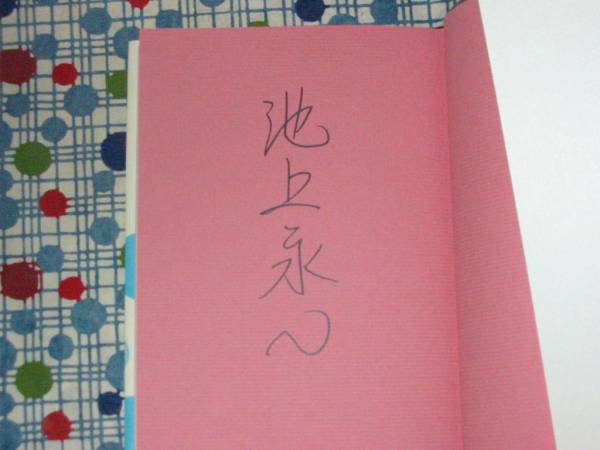 池上永一